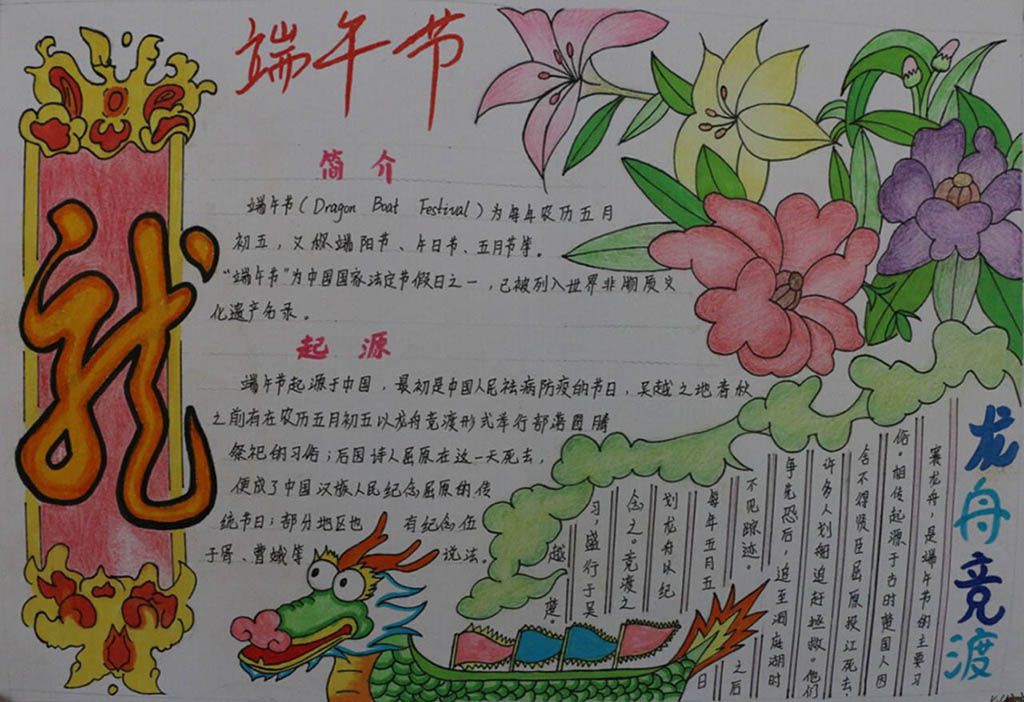 端午节
龙
简介
端午节(Dragon Boat Festival)为每年农历五月
初五,又称端阳节、午日节、五月节等。
“端午节”为中国国家法定节假日之一,已被列入世界非物质文
化遗产名录。
起源
端午节起源于中国,最初是中国人民祛病防疫的节日,吴越之地春秋
之前有在农历五月初五以龙舟竞渡形式举行部落图腾
祭祀的习俗;后因诗人屈原在这一天死去,
便成了中国汉族人民纪念屈原的传
统节日;部分地区也 有纪念伍
子胥、曹娥等 说法。
龙舟竞渡
赛龙舟,是端午节的主要习
俗。相传起源于古时楚国人因
舍不得贤臣屈原投江死去,
许多人划船追赶拯救。他们
争先恐后,追至洞庭湖时
不见踪迹。 之后
每年五月五 日
划龙舟以纪
念之。竞渡之
习,盛行于吴
越 楚。